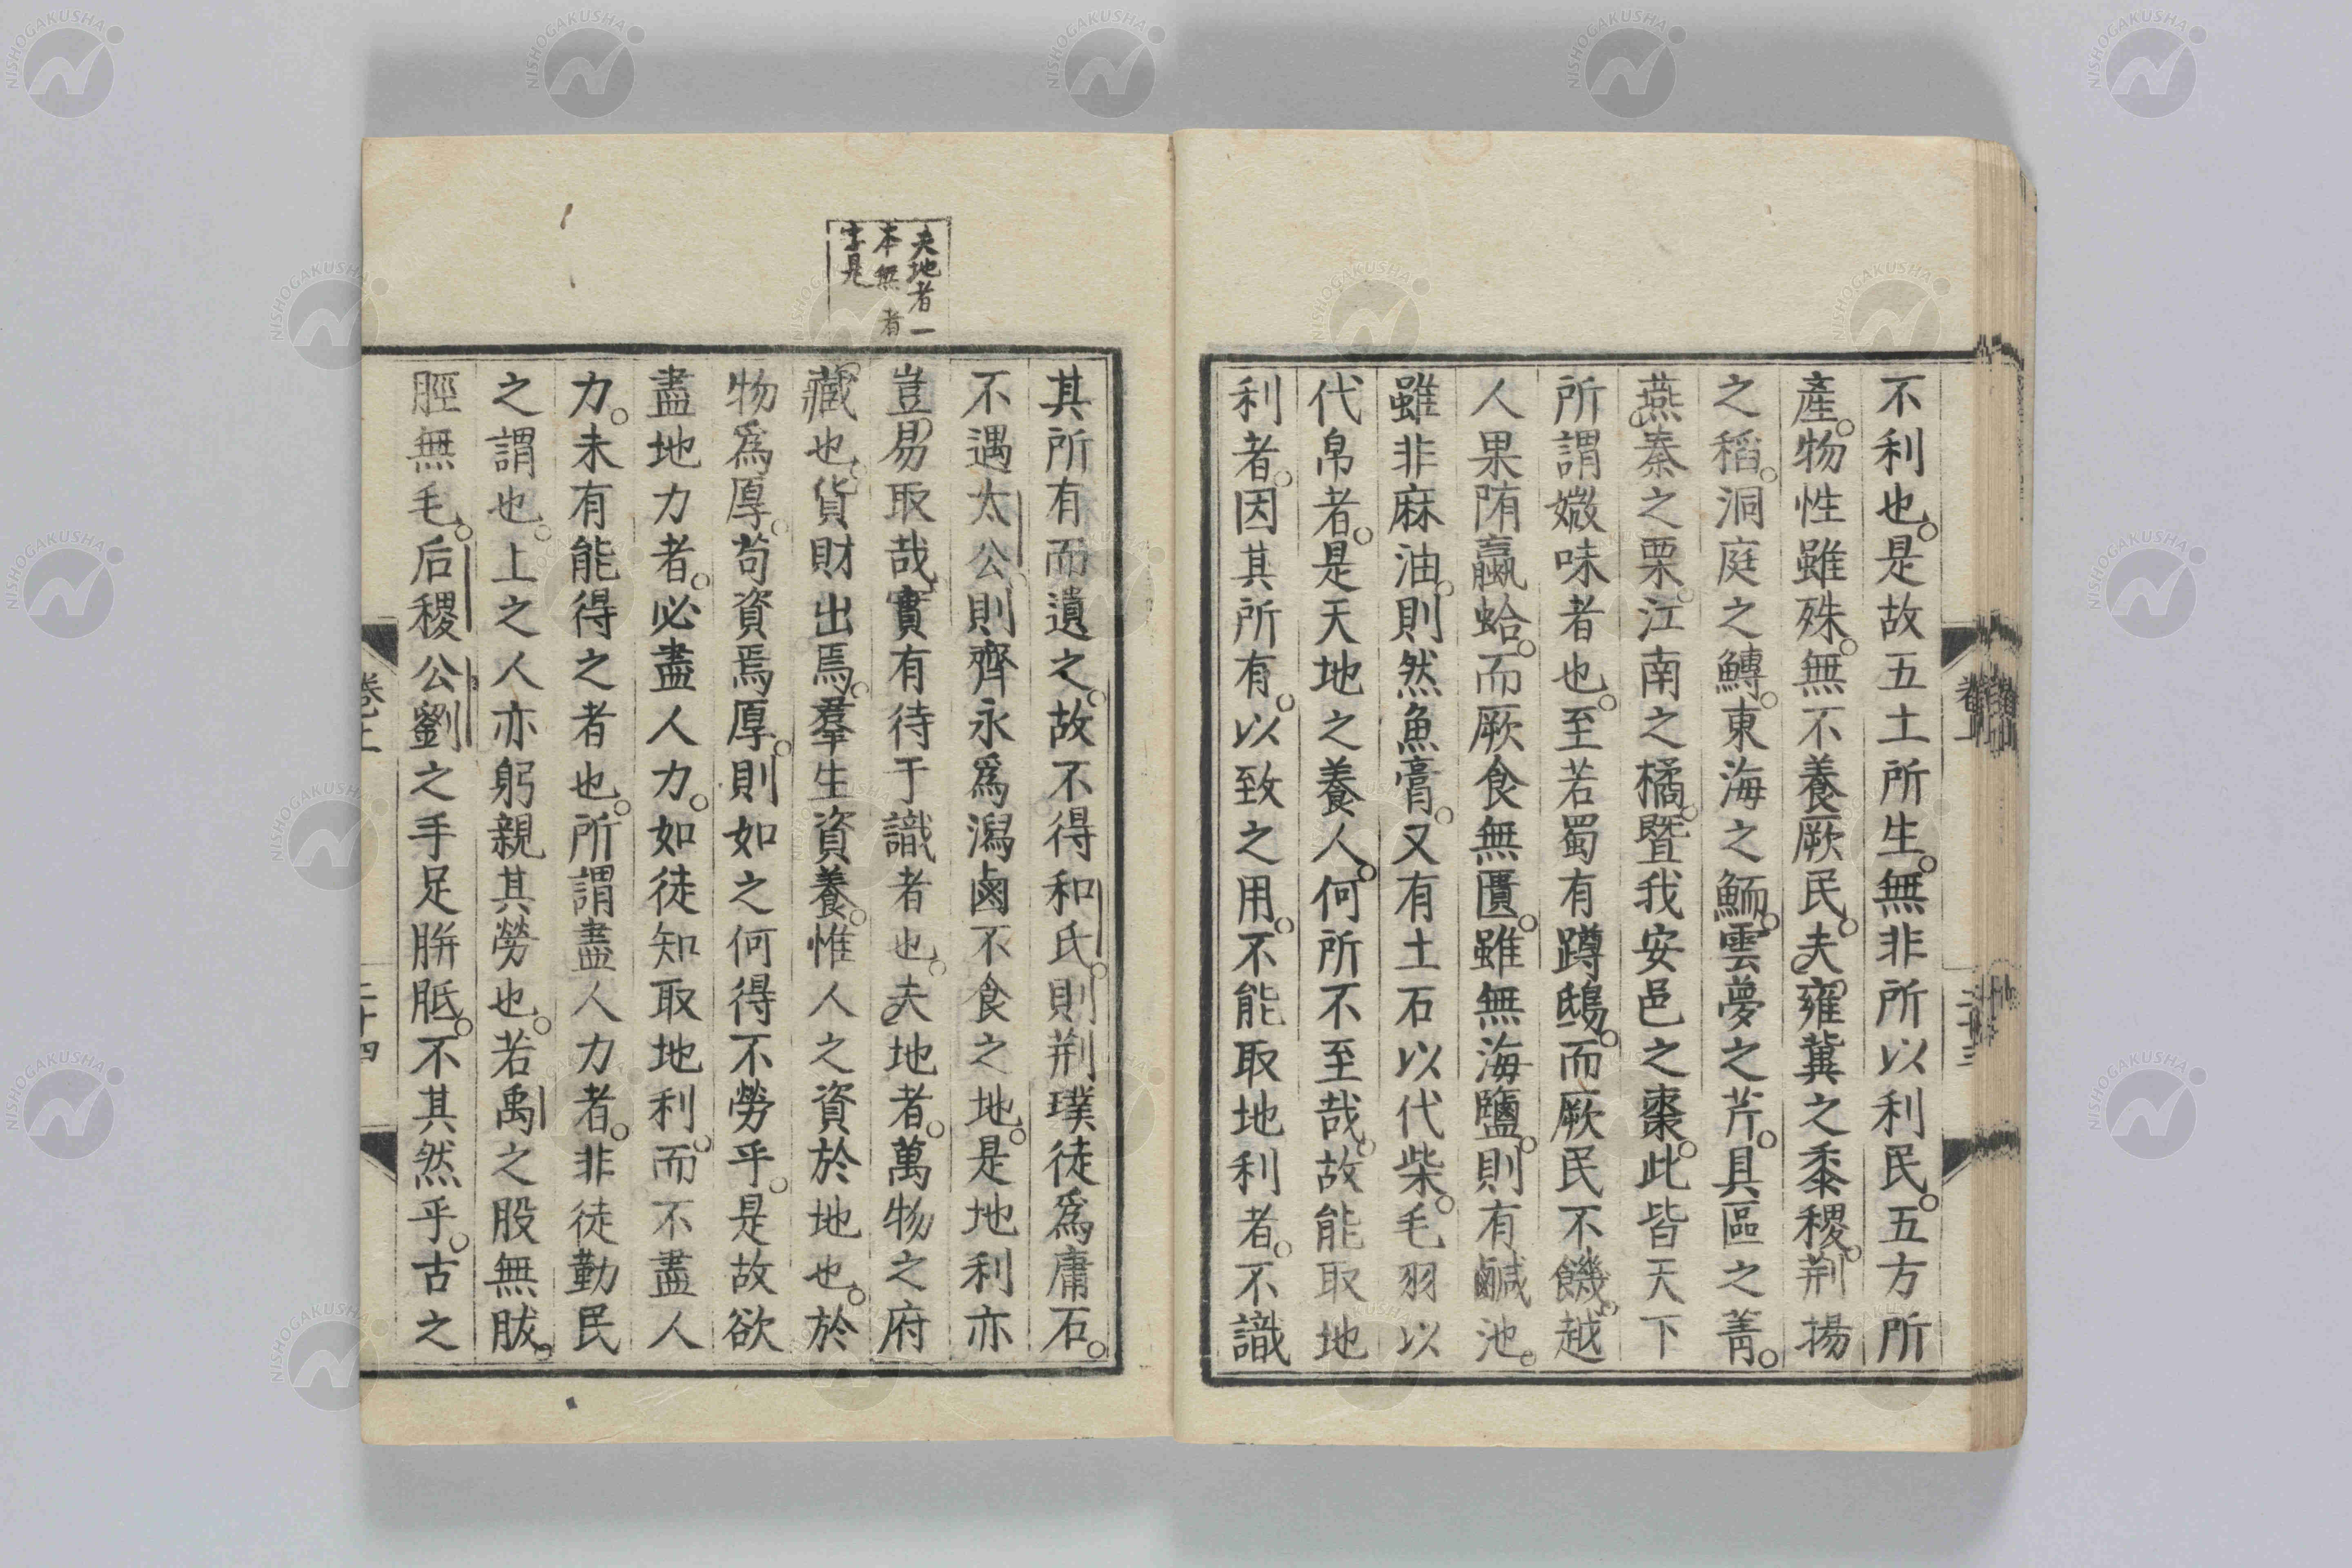 不利也。是故五土所生。無非所以利民。五方所
產。物性雖殊。無不養厥民。夫雍冀之黍稷。荊揚
之稻。洞庭之鱄。東海之鮞。雲夢之芹。具區之菁。
燕秦之栗。江南之橘。曁我安邑之棗。此皆天下
所謂媺味者也。至若蜀有蹲鴟。而厥民不饑。越
人果陏蠃蛤。而厥食無匱。雖無海鹽。則有鹹池。
雖非麻油。則然魚膏。又有土石以代柴。毛羽以
代帛者。是天地之養人。何所不至哉。故能取地
利者。因其所有。以致之用。不能取地利者。不識
卷上
二十三
夫地者一
本無者
字是
其所有而遺之。故不得和氏。則荊璞徒爲庸石。
不遇太公。則齊永爲潟鹵不食之地。是地利亦
豈易取哉。實有待于識者也。夫地者。萬物之府
藏也。貨財出焉。羣生資養。惟人之資於地也。於
物爲厚。苟資焉厚。則如之何得不勞乎。是故欲
盡地力者。必盡人力。如徒知取地利。而不盡人
力。未有能得之者也。所謂盡人力者。非徒勤民
之謂也。上之人亦躬親其勞也。若禹之股無胈。
脛無毛。后稷公劉之手足胼胝。不其然乎。古之
卷上
二十四
NISHOGAKUSHA